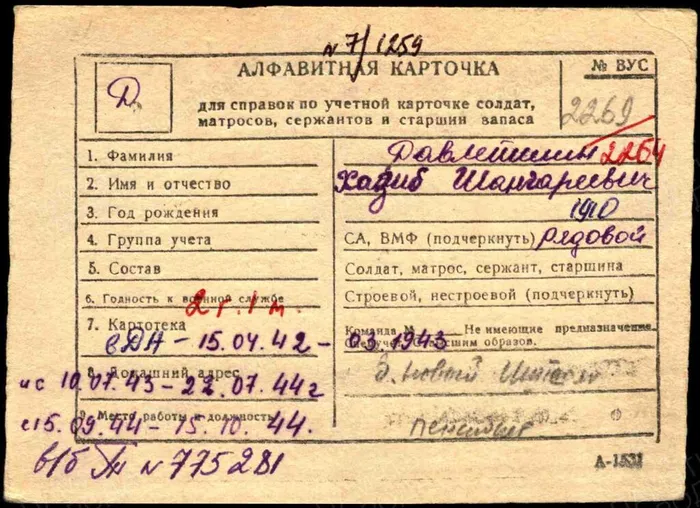 N 7/1259
АЛФАВИТНАЯ КАРТОЧКА
№ ВУС
Д
для справок по учетной карточке солдат,
матросов, сержантов и старшин запаса
2269
2264
1. Фамилия
Давлетшин
2. Имя и отчество
Хадиб Шангареевич
3. Год рождения
1910
4. Группа учета
СА, ВМФ (подчеркнуть) рядовой
5. Состав
Солдат, матрос, сержант, старшина
6. Годность к военной службе
Строевой, нестроевой (подчеркнуть)
2 г. 1 м.
7. Картотека
Команда № Не имеющие предназначения
в ДА - 15.04.42 - 03.1943
8. Домашний адрес
д. Новый
и с 10.07.43 - 22.07.44 г
9. Место работы и должность
с 15.09.44 - 15.10.44.
в/б N 775281
А-1531